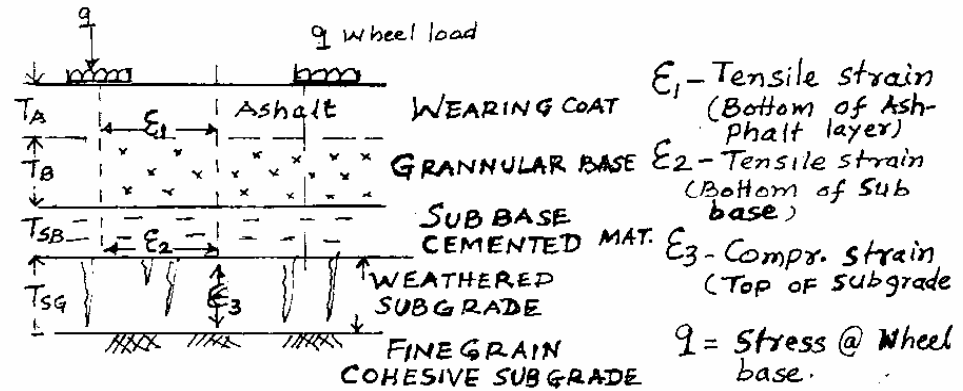 q
q wheel load
TA
Ɛ1
Ashalt
WEARING COAT
TB
GRANNULAR BASE
TSB
Ɛ2
SUB BASE
CEMENTED MAT.
TSG
Ɛ3
WEATHERED
SUBGRADE
FINE GRAIN
COHESIVE SUBGRADE
Ɛ1 - Tensile strain
(Bottom of Ash-
phalt layer)
Ɛ2 - Tensile strain
(Bottom of Sub
base)
Ɛ3 - Compr. strain
(Top of Subgrade
q = Stress @ Wheel
base.